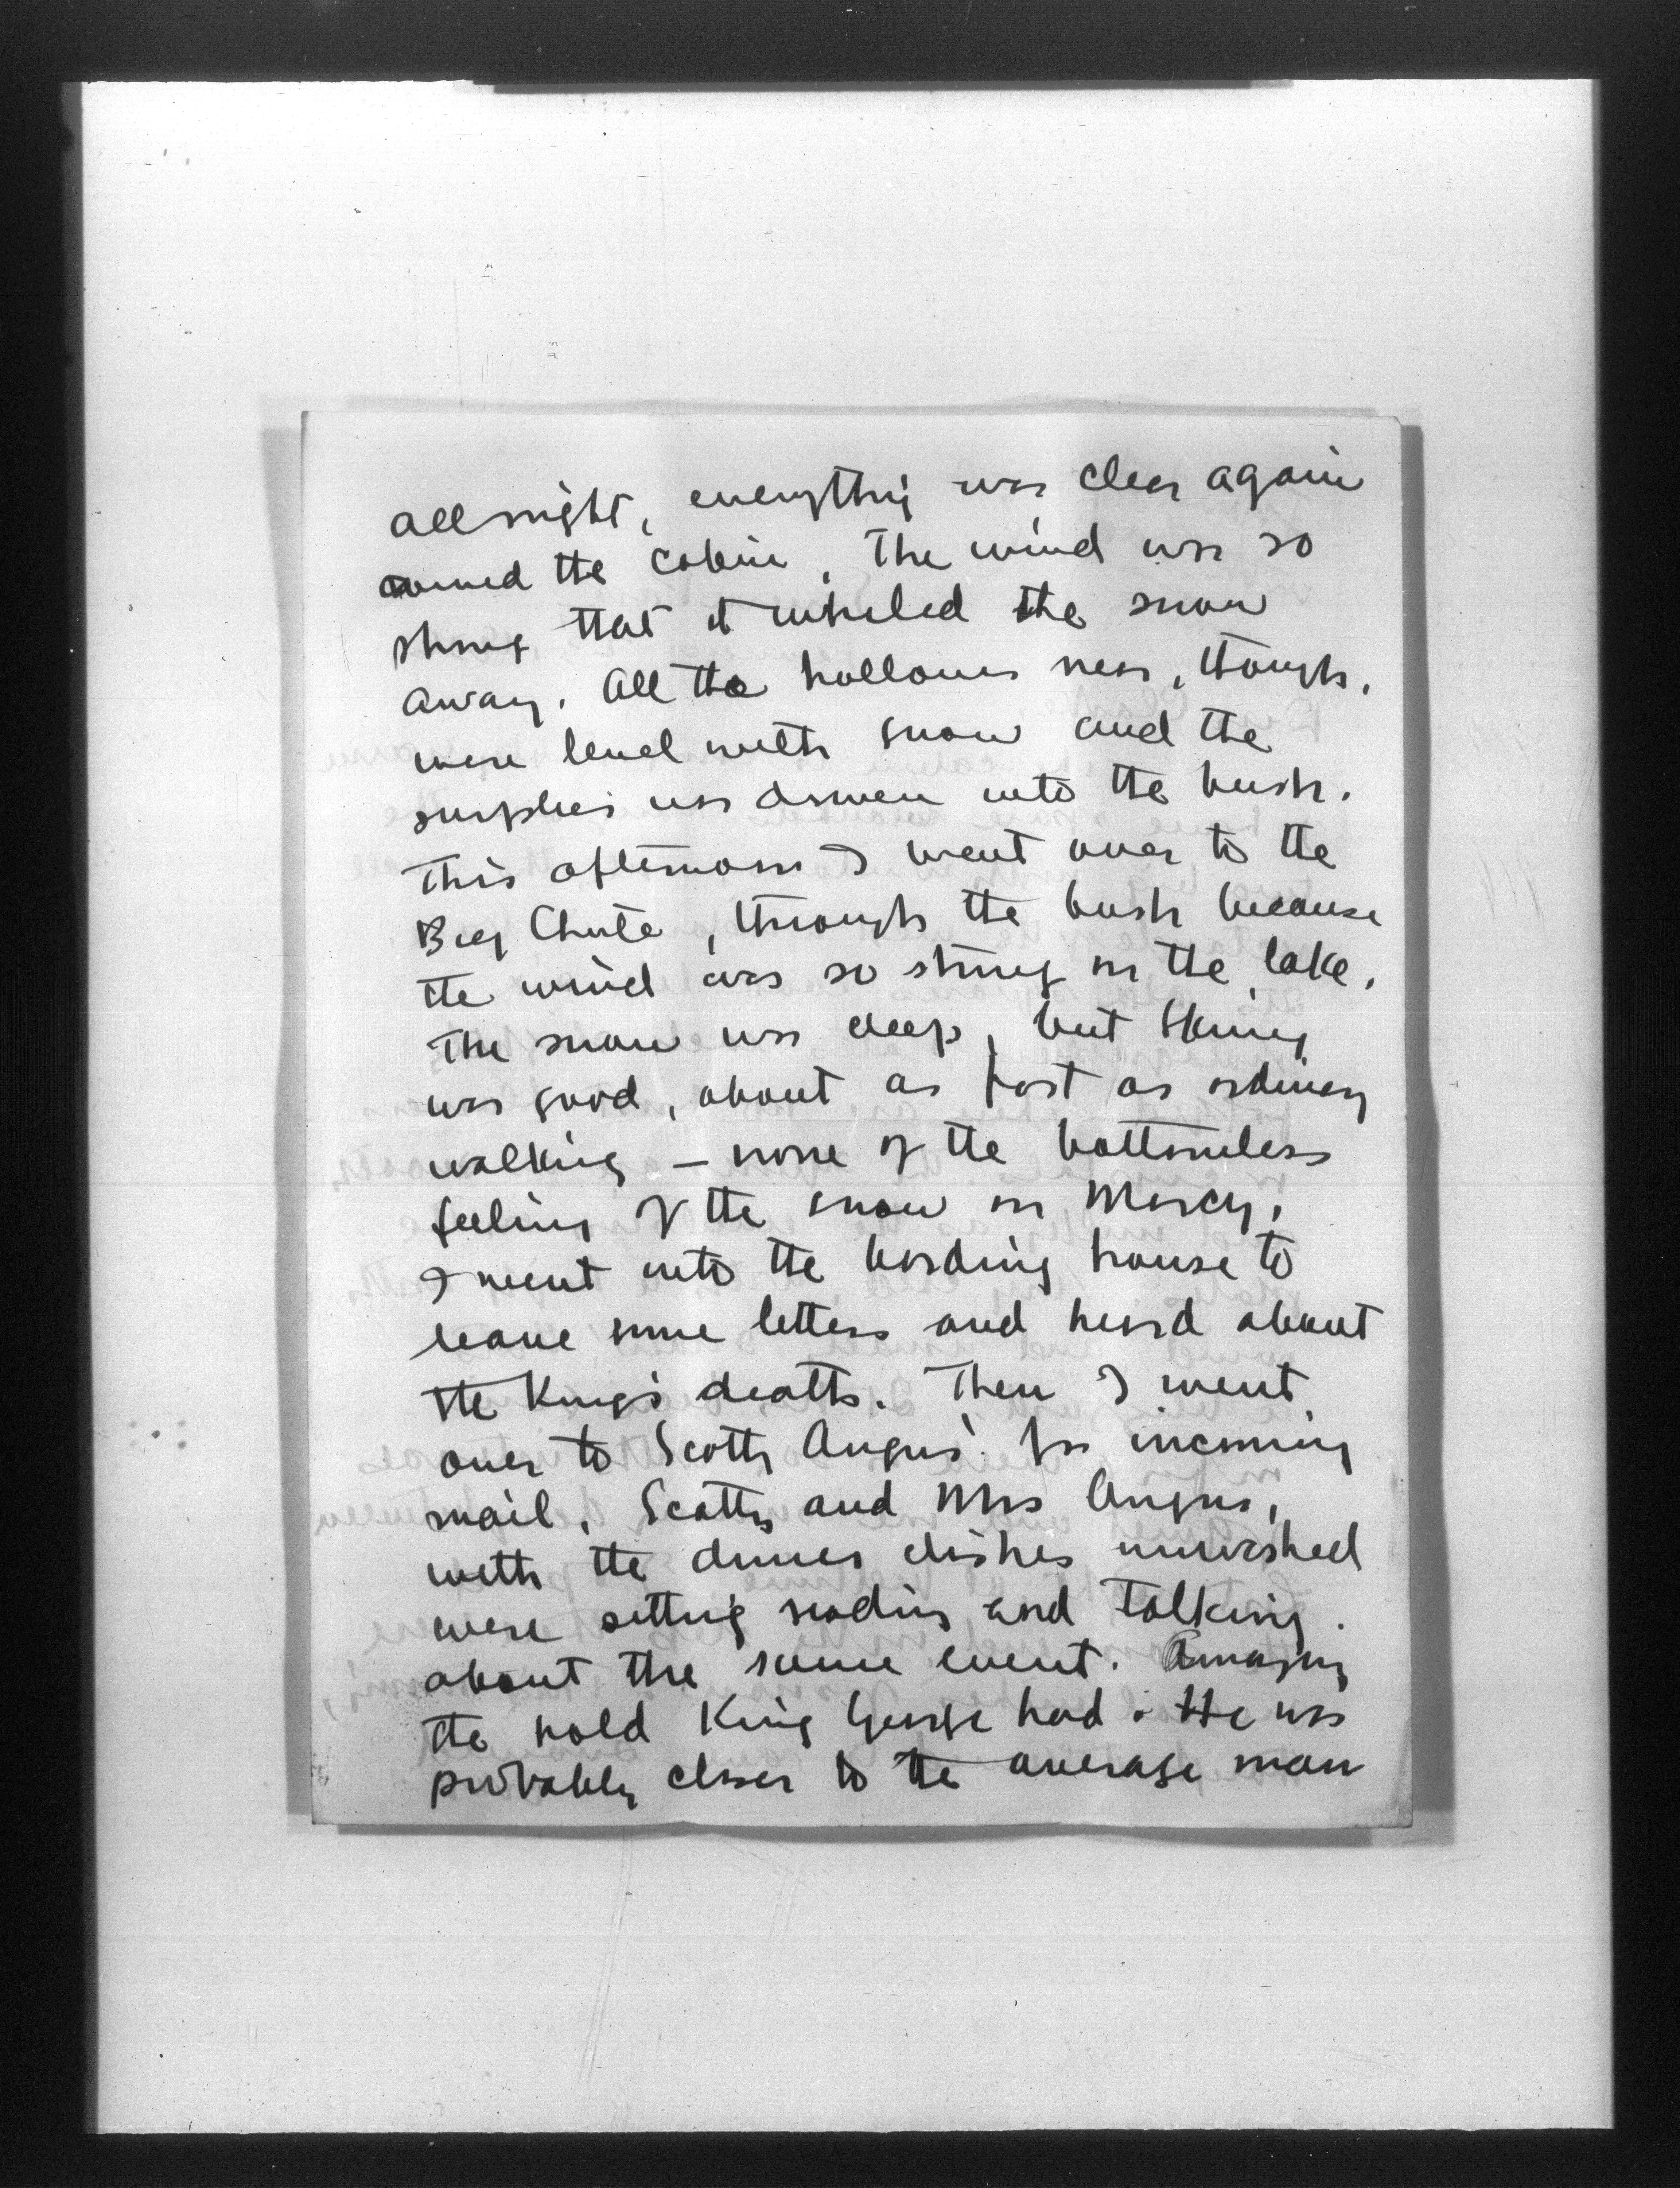 all night, everything was clear again
around the cabin. The wind was so
strong that it whirled the snow
away. All the hollows near, though,
were level with snow and the
surplus was driven into the bush.
This afternoon I went over to the
Big Chute, through the bush because
the wind was so strong on the lake.
The snow was deep, but skiing
was good, about as fast as ordinary
walking – none of the bottomless
feeling of the snow on Marcy.
I went into the boarding house to
leave some letters and heard about
the King's death. Then I went
over to Scotty Angus' for incoming
mail. Scotty and Mrs Angus,
with the dinner dishes unwashed
were sitting reading and talking
about the same event. Amazing
the hold King George had. He was
probably closer to the average man